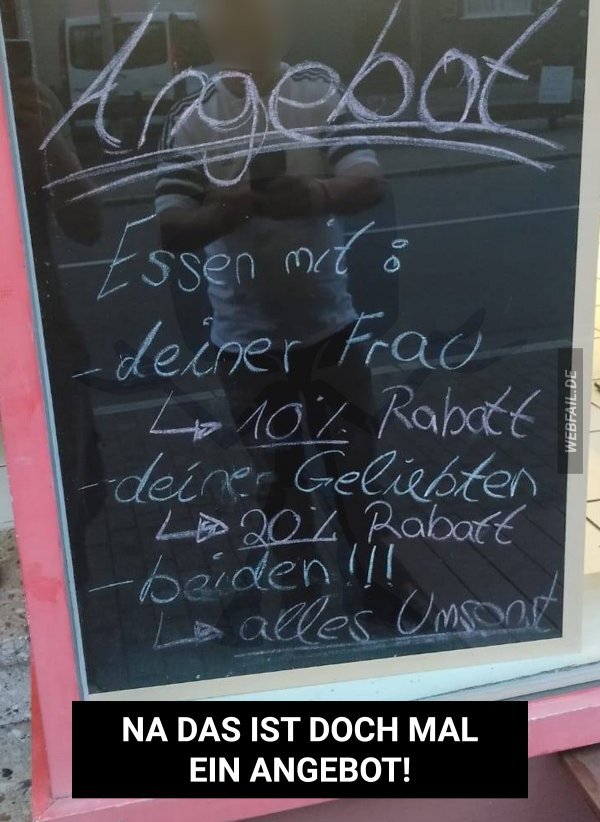 Angebot
Essen mit:
- deiner Frau
↳ 10% Rabatt
- deiner Geliebten
↳ 20% Rabatt
- beiden!!!
↳ alles Umsonst
WEBFAIL.DE
NA DAS IST DOCH MAL
EIN ANGEBOT!